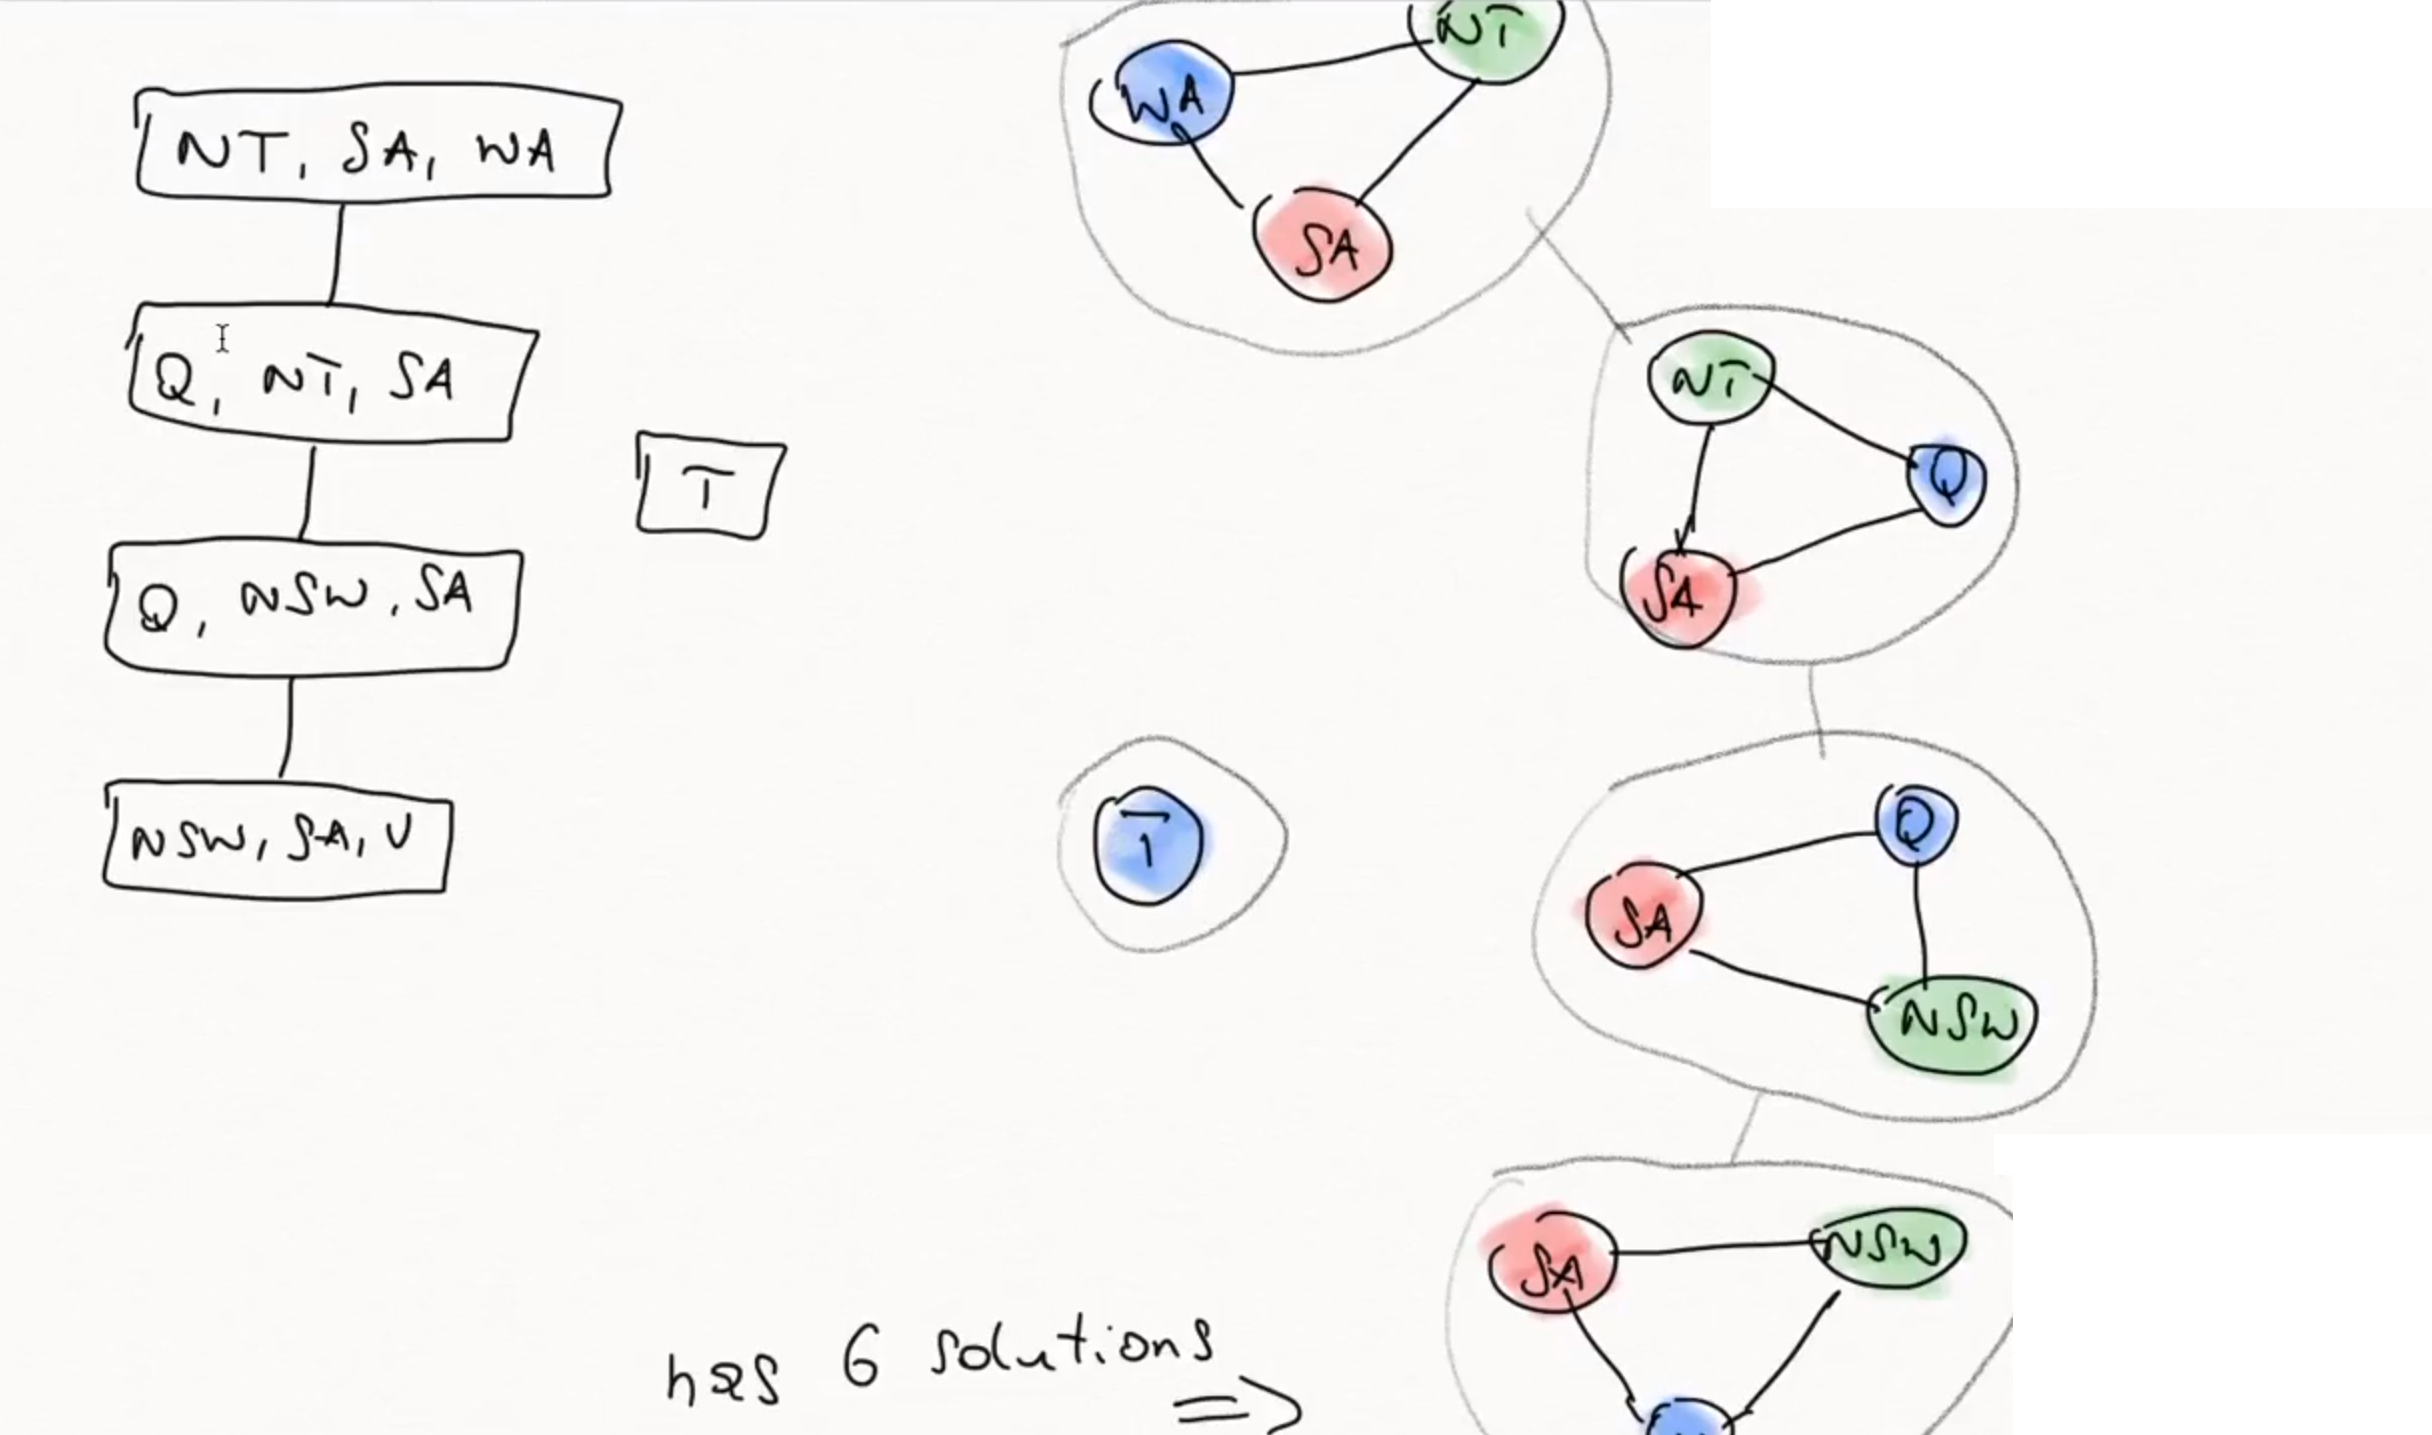 NT, SA, WA
Q, NT, SA
T
Q, NSW, SA
NSW, SA, V
NT
WA
SA
NT
Q
SA
T
Q
SA
NSW
SA
NSW
has 6 solutions
=>